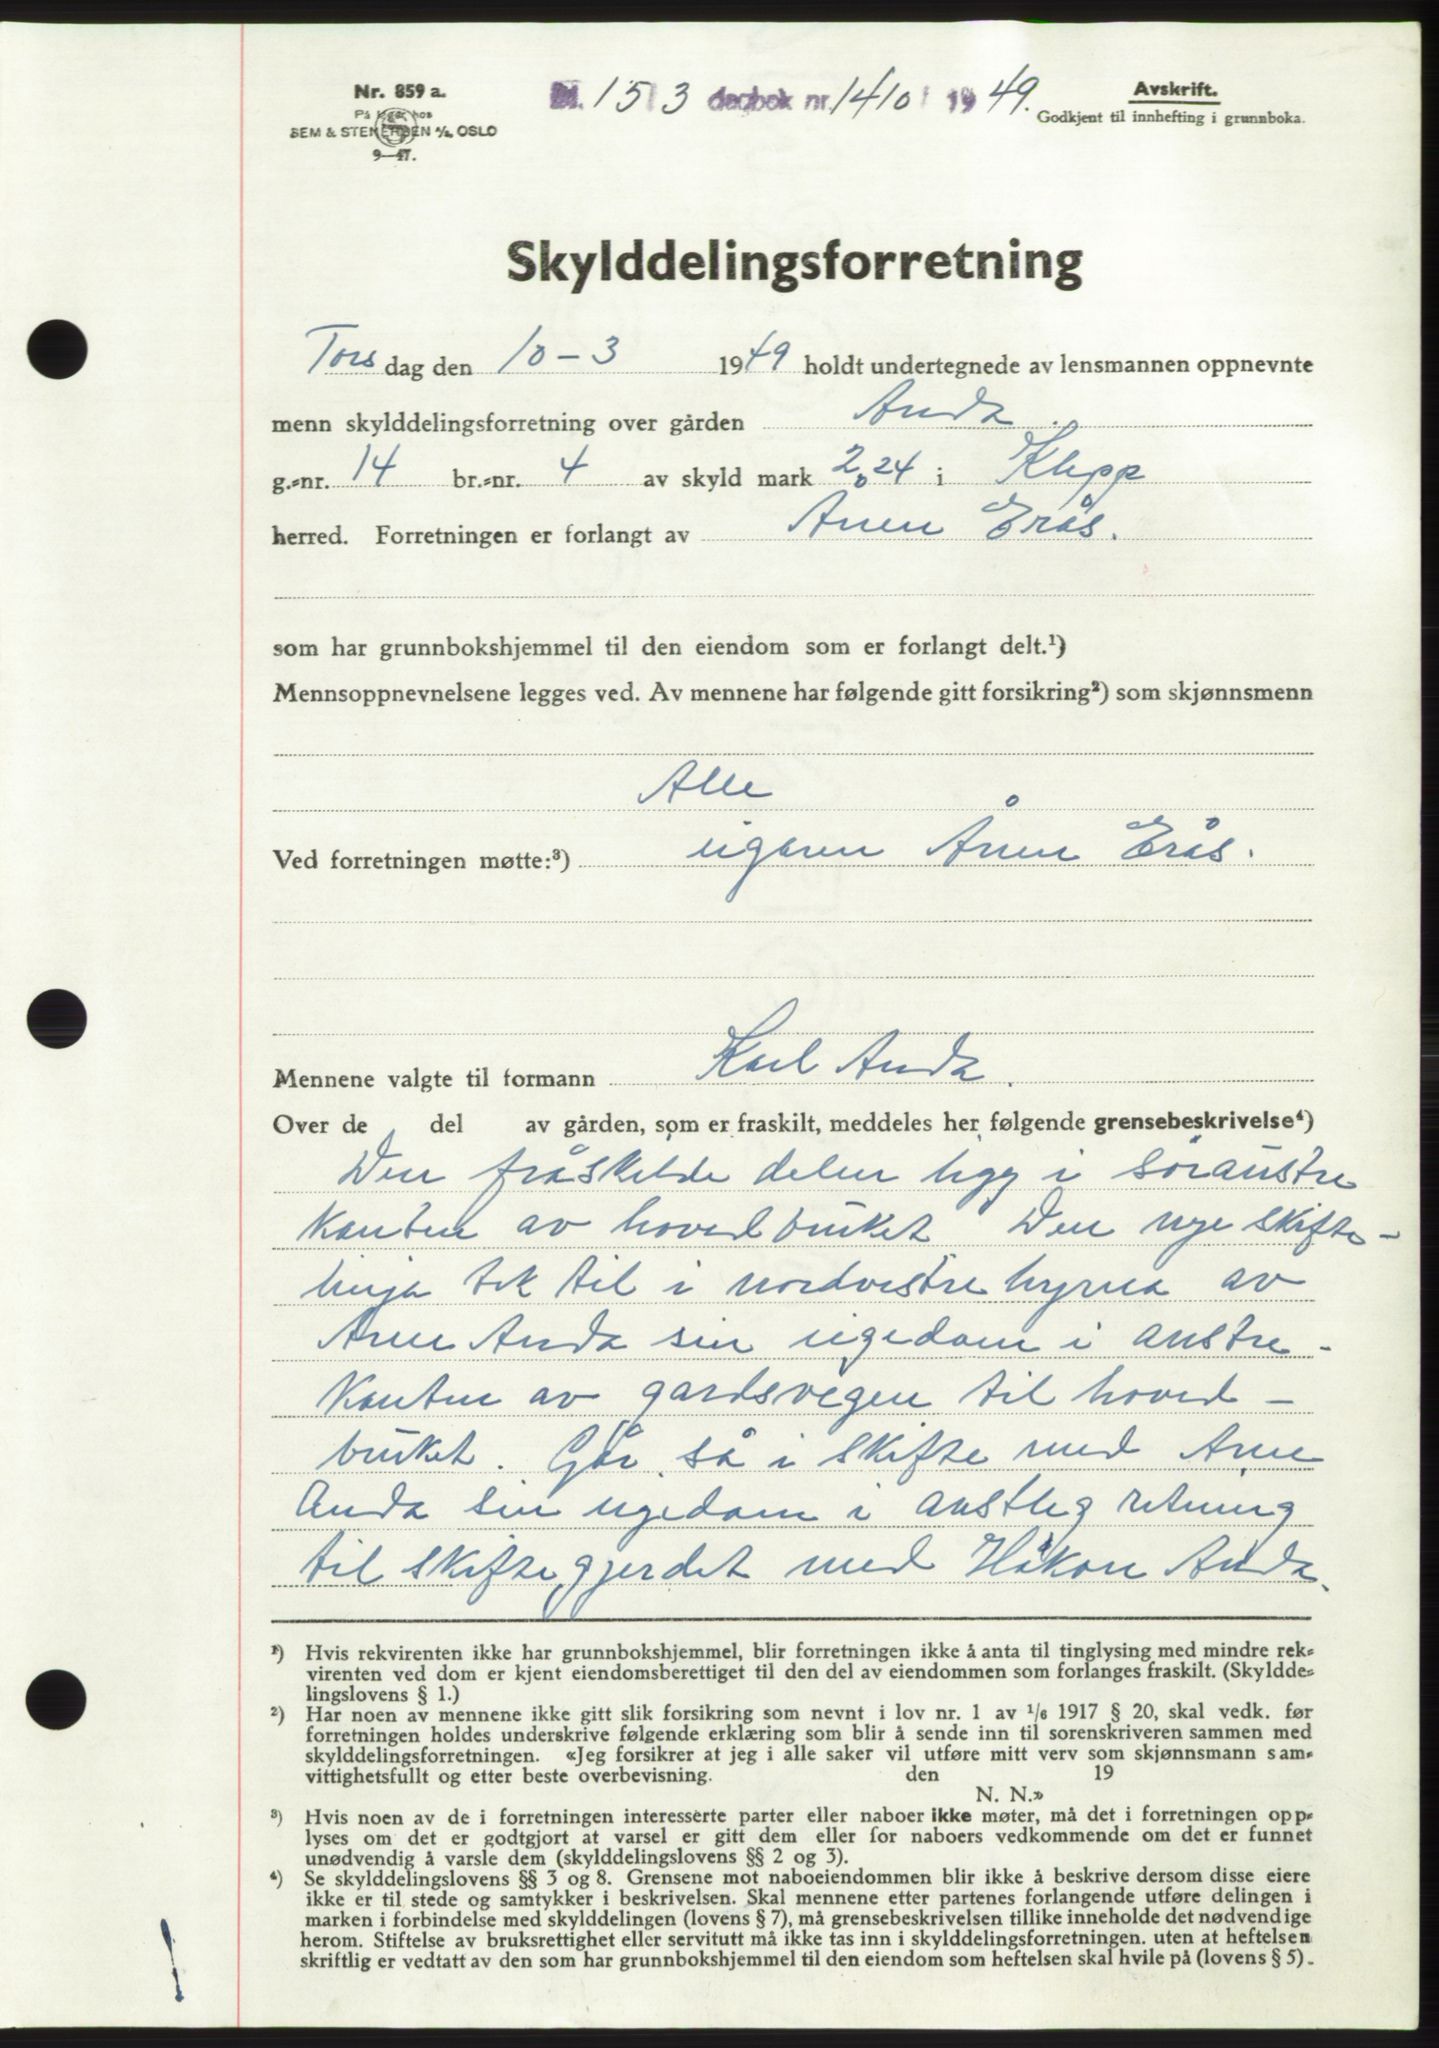 Nr. 859 a.
På lager hos
SEM & STENERSEN A/S, OSLO
9—47.
15/3 dagbok nr. 1410 1949.
Avskrift.
Godkjent til innhefting i grunnboka.
Skylddelingsforretning
Torsdag den 10-3 1949 holdt undertegnede av lensmannen oppnevnte
menn skylddelingsforretning over gården Anda.
g.=nr. 14 br.=nr. 4 av skyld mark 2,24 i Klepp
herred. Forretningen er forlangt av Ånen Erås.
som har grunnbokshjemmel til den eiendom som er forlangt delt.¹)
Mennsoppnevnelsene legges ved. Av mennene har følgende gitt forsikring²) som skjønnsmenn
Alle
Ved forretningen møtte:³) eigaren Ånen Erås.
Mennene valgte til formann Karl Anda.
Over de del av gården, som er fraskilt, meddeles her følgende grensebeskrivelse⁴)
Den fråskilde delen ligg i søraustre
kanten av hovedbruket Den nye skifte-
linja tek til i nordvestre hyrna av
Arne Anda sin eigedom i austre-
kanten av gardsvegen til hoved-
bruket. Går så i skifte med Arne
Anda sin eigedom i austleg retning
til skiftegjerdet med Håkon Anda.
¹) Hvis rekvirenten ikke har grunnbokshjemmel, blir forretningen ikke å anta til tinglysing med mindre rek=
virenten ved dom er kjent eiendomsberettiget til den del av eiendommen som forlanges fraskilt. (Skyldde=
lingslovens § 1.)
²) Har noen av mennene ikke gitt slik forsikring som nevnt i lov nr. 1 av 1/6 1917 § 20, skal vedk. før
forretningen holdes underskrive følgende erklæring som blir å sende inn til sorenskriveren sammen med
skylddelingsforretningen. «Jeg forsikrer at jeg i alle saker vil utføre mitt verv som skjønnsmann sam=
vittighetsfullt og etter beste overbevisning. den 19
N. N.»
³) Hvis noen av de i forretningen interesserte parter eller naboer ikke møter, må det i forretningen opp=
lyses om det er godtgjort at varsel er gitt dem eller for naboers vedkommende om det er funnet
unødvendig å varsle dem (skylddelingslovens §§ 2 og 3).
⁴) Se skylddelingslovens §§ 3 og 8. Grensene mot naboeiendommen blir ikke å beskrive dersom disse eiere
ikke er til stede og samtykker i beskrivelsen. Skal mennene etter partenes forlangende utføre delingen i
marken i forbindelse med skylddelingen (lovens § 7), må grensebeskrivelsen tillike inneholde det nødvendige
herom. Stiftelse av bruksrettighet eller servitutt må ikke tas inn i skylddelingsforretningen. uten at heftelsen
skriftlig er vedtatt av den som har grunnbokshjemmel til den eiendom som heftelsen skal hvile på (lovens § 5).